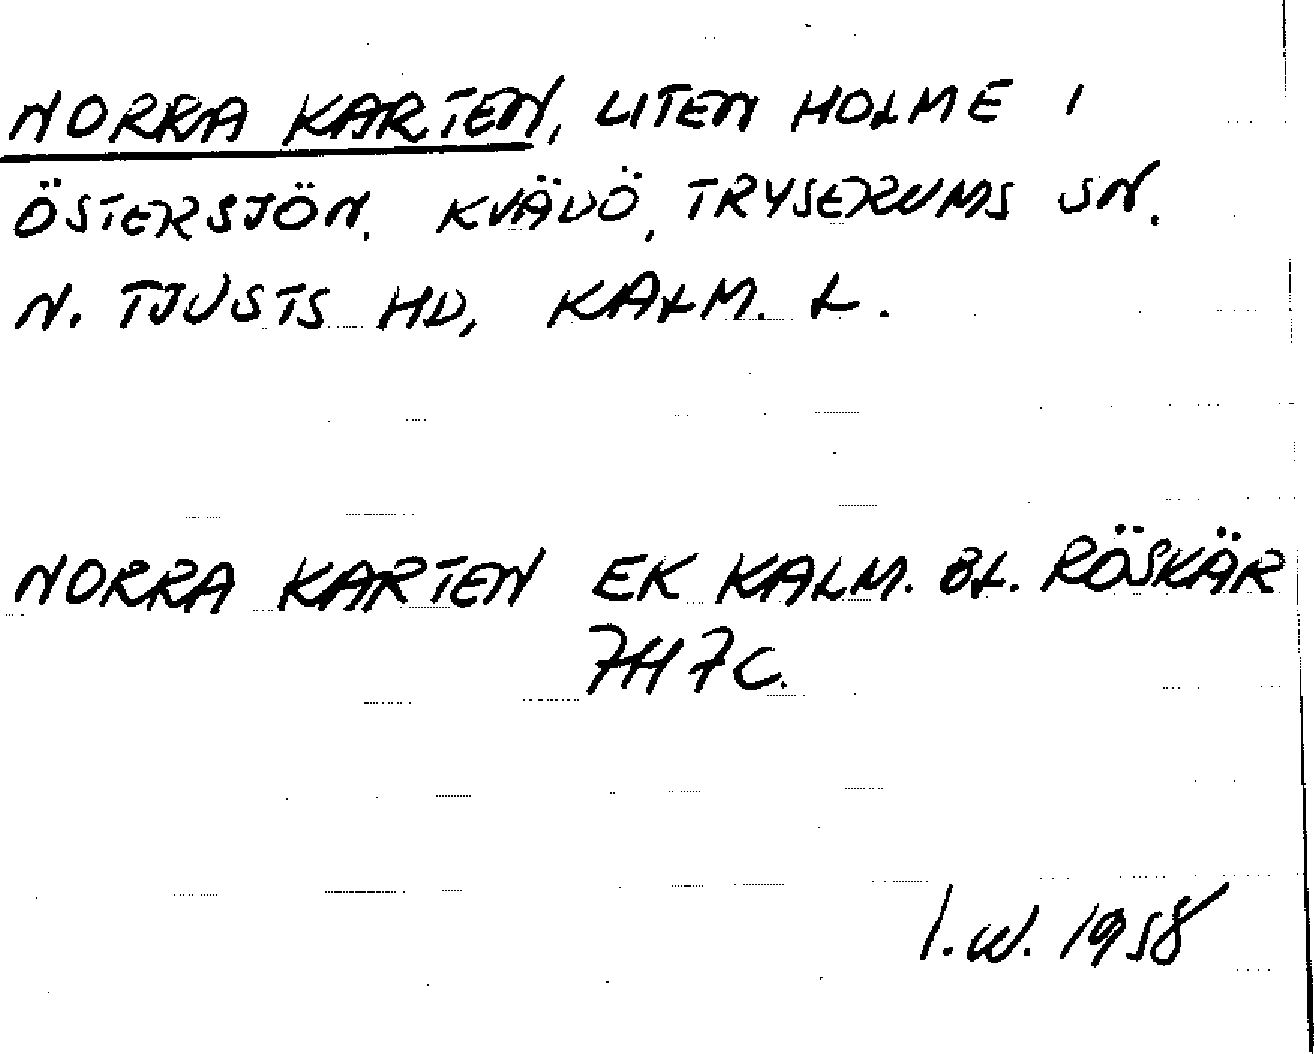 NORRA KARTEN, LITEN HOLME I
ÖSTERSJÖN. KVÄDÖ, TRYSERUMS SN.
N. TJUSTS HD, KALM. L.
NORRA KARTEN EK KALM. BL. RÖSKÄR
7H7C.
I.W. 1958